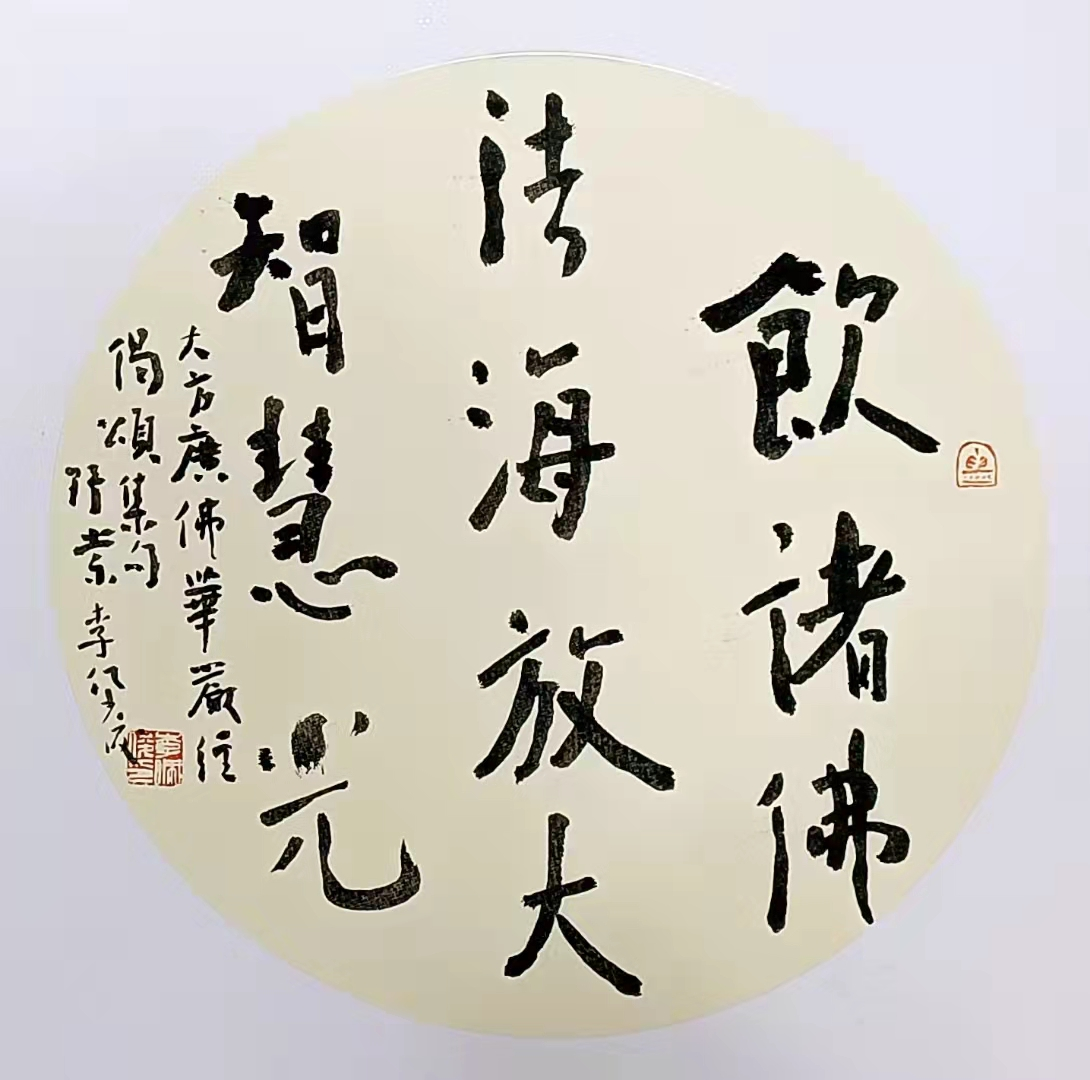 飲諸佛
法海放大
智慧光
大方廣佛華嚴經
偈頌集句
李